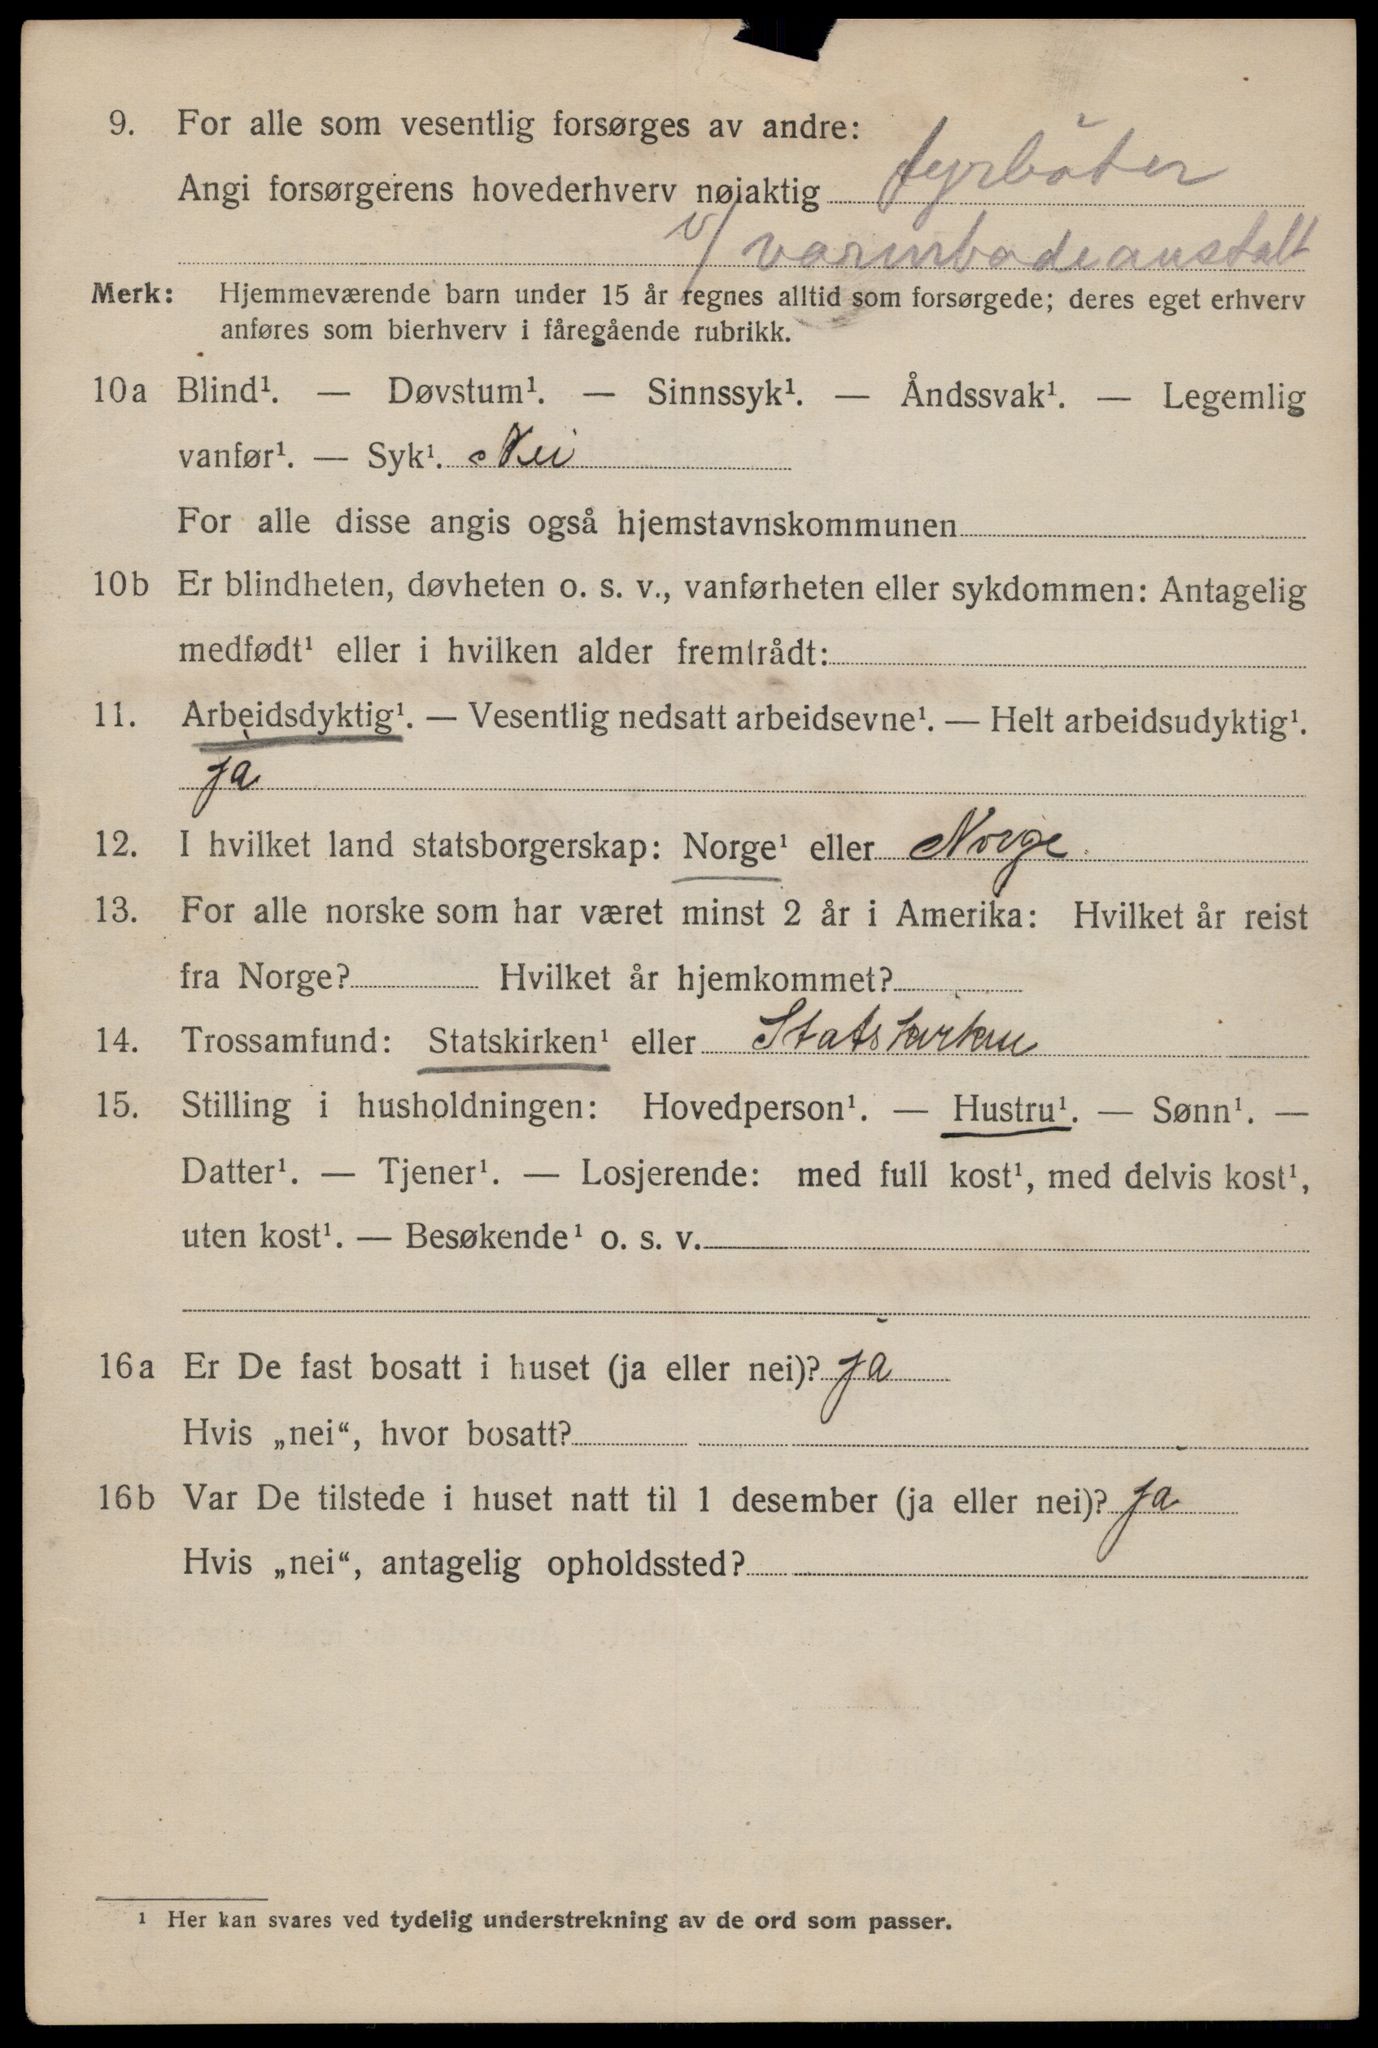 9. For alle som vesentlig forsørges av andre:
Angi forsørgerens hovederhverv nøiaktig fyrböter
v/ varmbadeanstalt
Merk: Hjemmeværende barn under 15 år regnes alltid som forsørgede; deres eget erhverv
anføres som bierhverv i fåregående rubrikk.
10a Blind¹. — Døvstum¹. — Sinnssyk¹. — Åndssvak¹. — Legemlig
vanfør¹. — Syk¹. Nei
For alle disse angis også hjemstavnskommunen
10b Er blindheten, døvheten o. s. v., vanførheten eller sykdommen: Antagelig
medfødt¹ eller i hvilken alder fremtrådt:
11. Arbeidsdyktig¹. — Vesentlig nedsatt arbeidsevne¹. — Helt arbeidsudyktig¹.
ja
12. I hvilket land statsborgerskap: Norge¹ eller Norge
13. For alle norske som har været minst 2 år i Amerika: Hvilket år reist
fra Norge? Hvilket år hjemkommet?
14. Trossamfund: Statskirken¹ eller Statskirken
15. Stilling i husholdningen: Hovedperson¹. — Hustru¹. — Sønn¹. —
Datter¹. — Tjener¹. — Losjerende: med full kost¹, med delvis kost¹,
uten kost¹. — Besøkende¹ o. s. v.
16a Er De fast bosatt i huset (ja eller nei)? ja
Hvis „nei“, hvor bosatt?
16b Var De tilstede i huset natt til 1 desember (ja eller nei)? ja
Hvis „nei“, antagelig opholdssted?
¹ Her kan svares ved tydelig understrekning av de ord som passer.